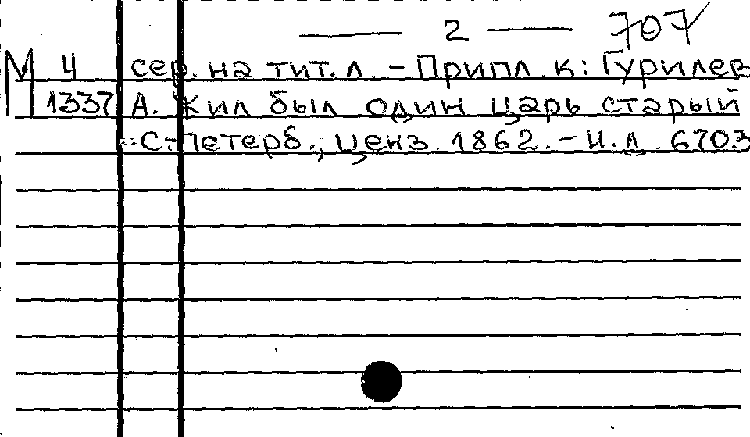 — 2 — 707
М 4 сер. на тит. л. – Припл. к: Гурилев
1337 А. Жил был один царь старый
С.-Петерб., ценз. 1862. – И.д. 6703